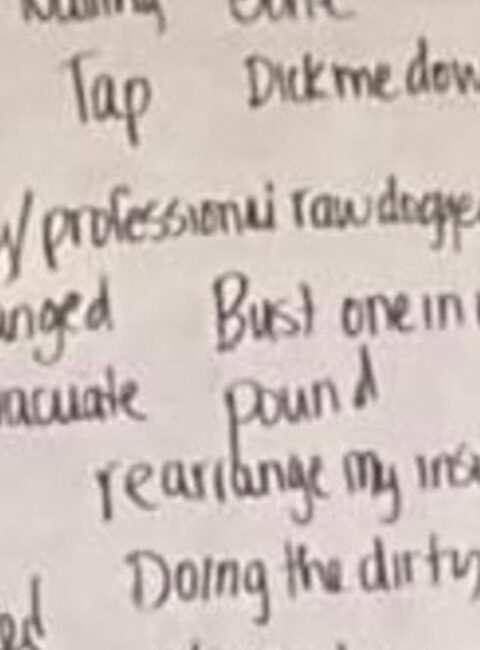 Tap Dick me dow
w/ professional raw dogge
anged Bust one in
vacuate pound
rearrange my insi
Doing the dirty
ed